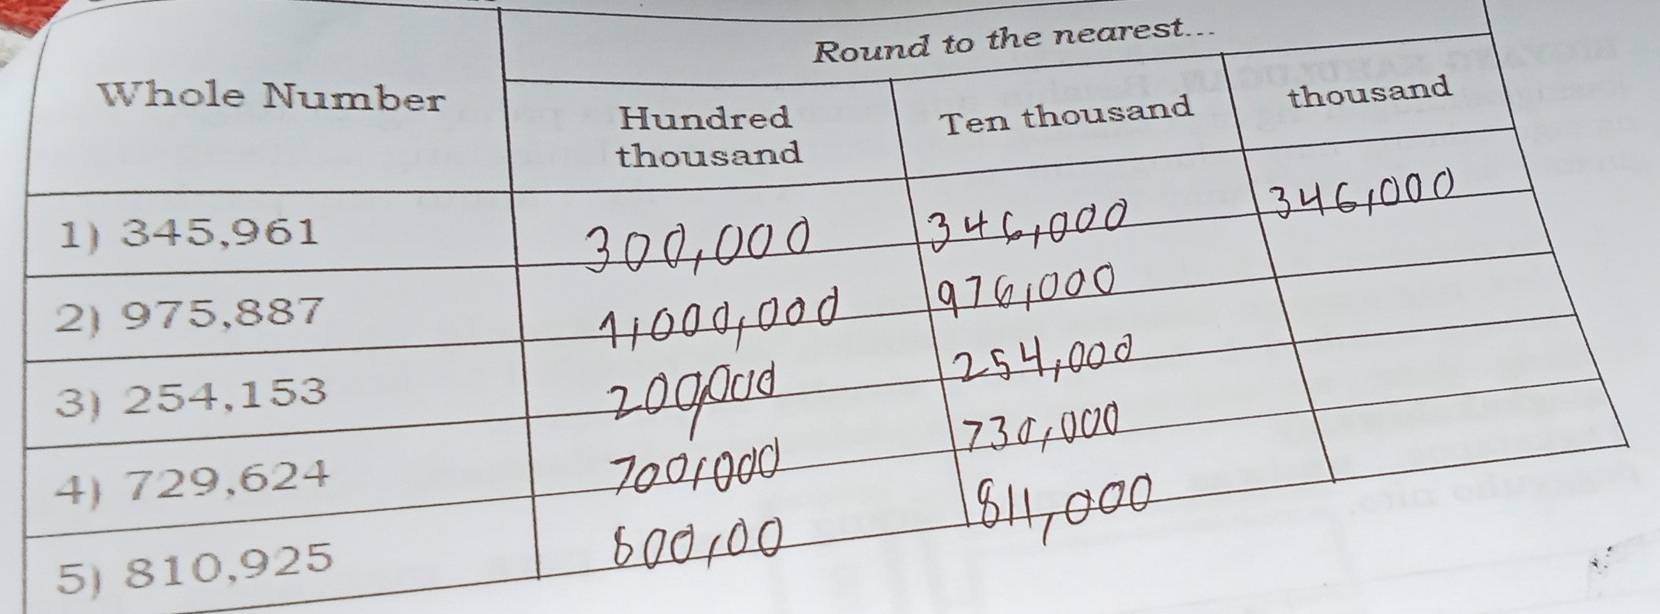 Round to the nearest...
Whole Number
Hundred thousand
Ten thousand
thousand
1) 345,961 300,000 346,000 346,000
2) 975,887 1,000,000 976,000
3) 254,153 200,000 254,000
4) 729,624 700,000 730,000
5) 810,925 800,00 811,000